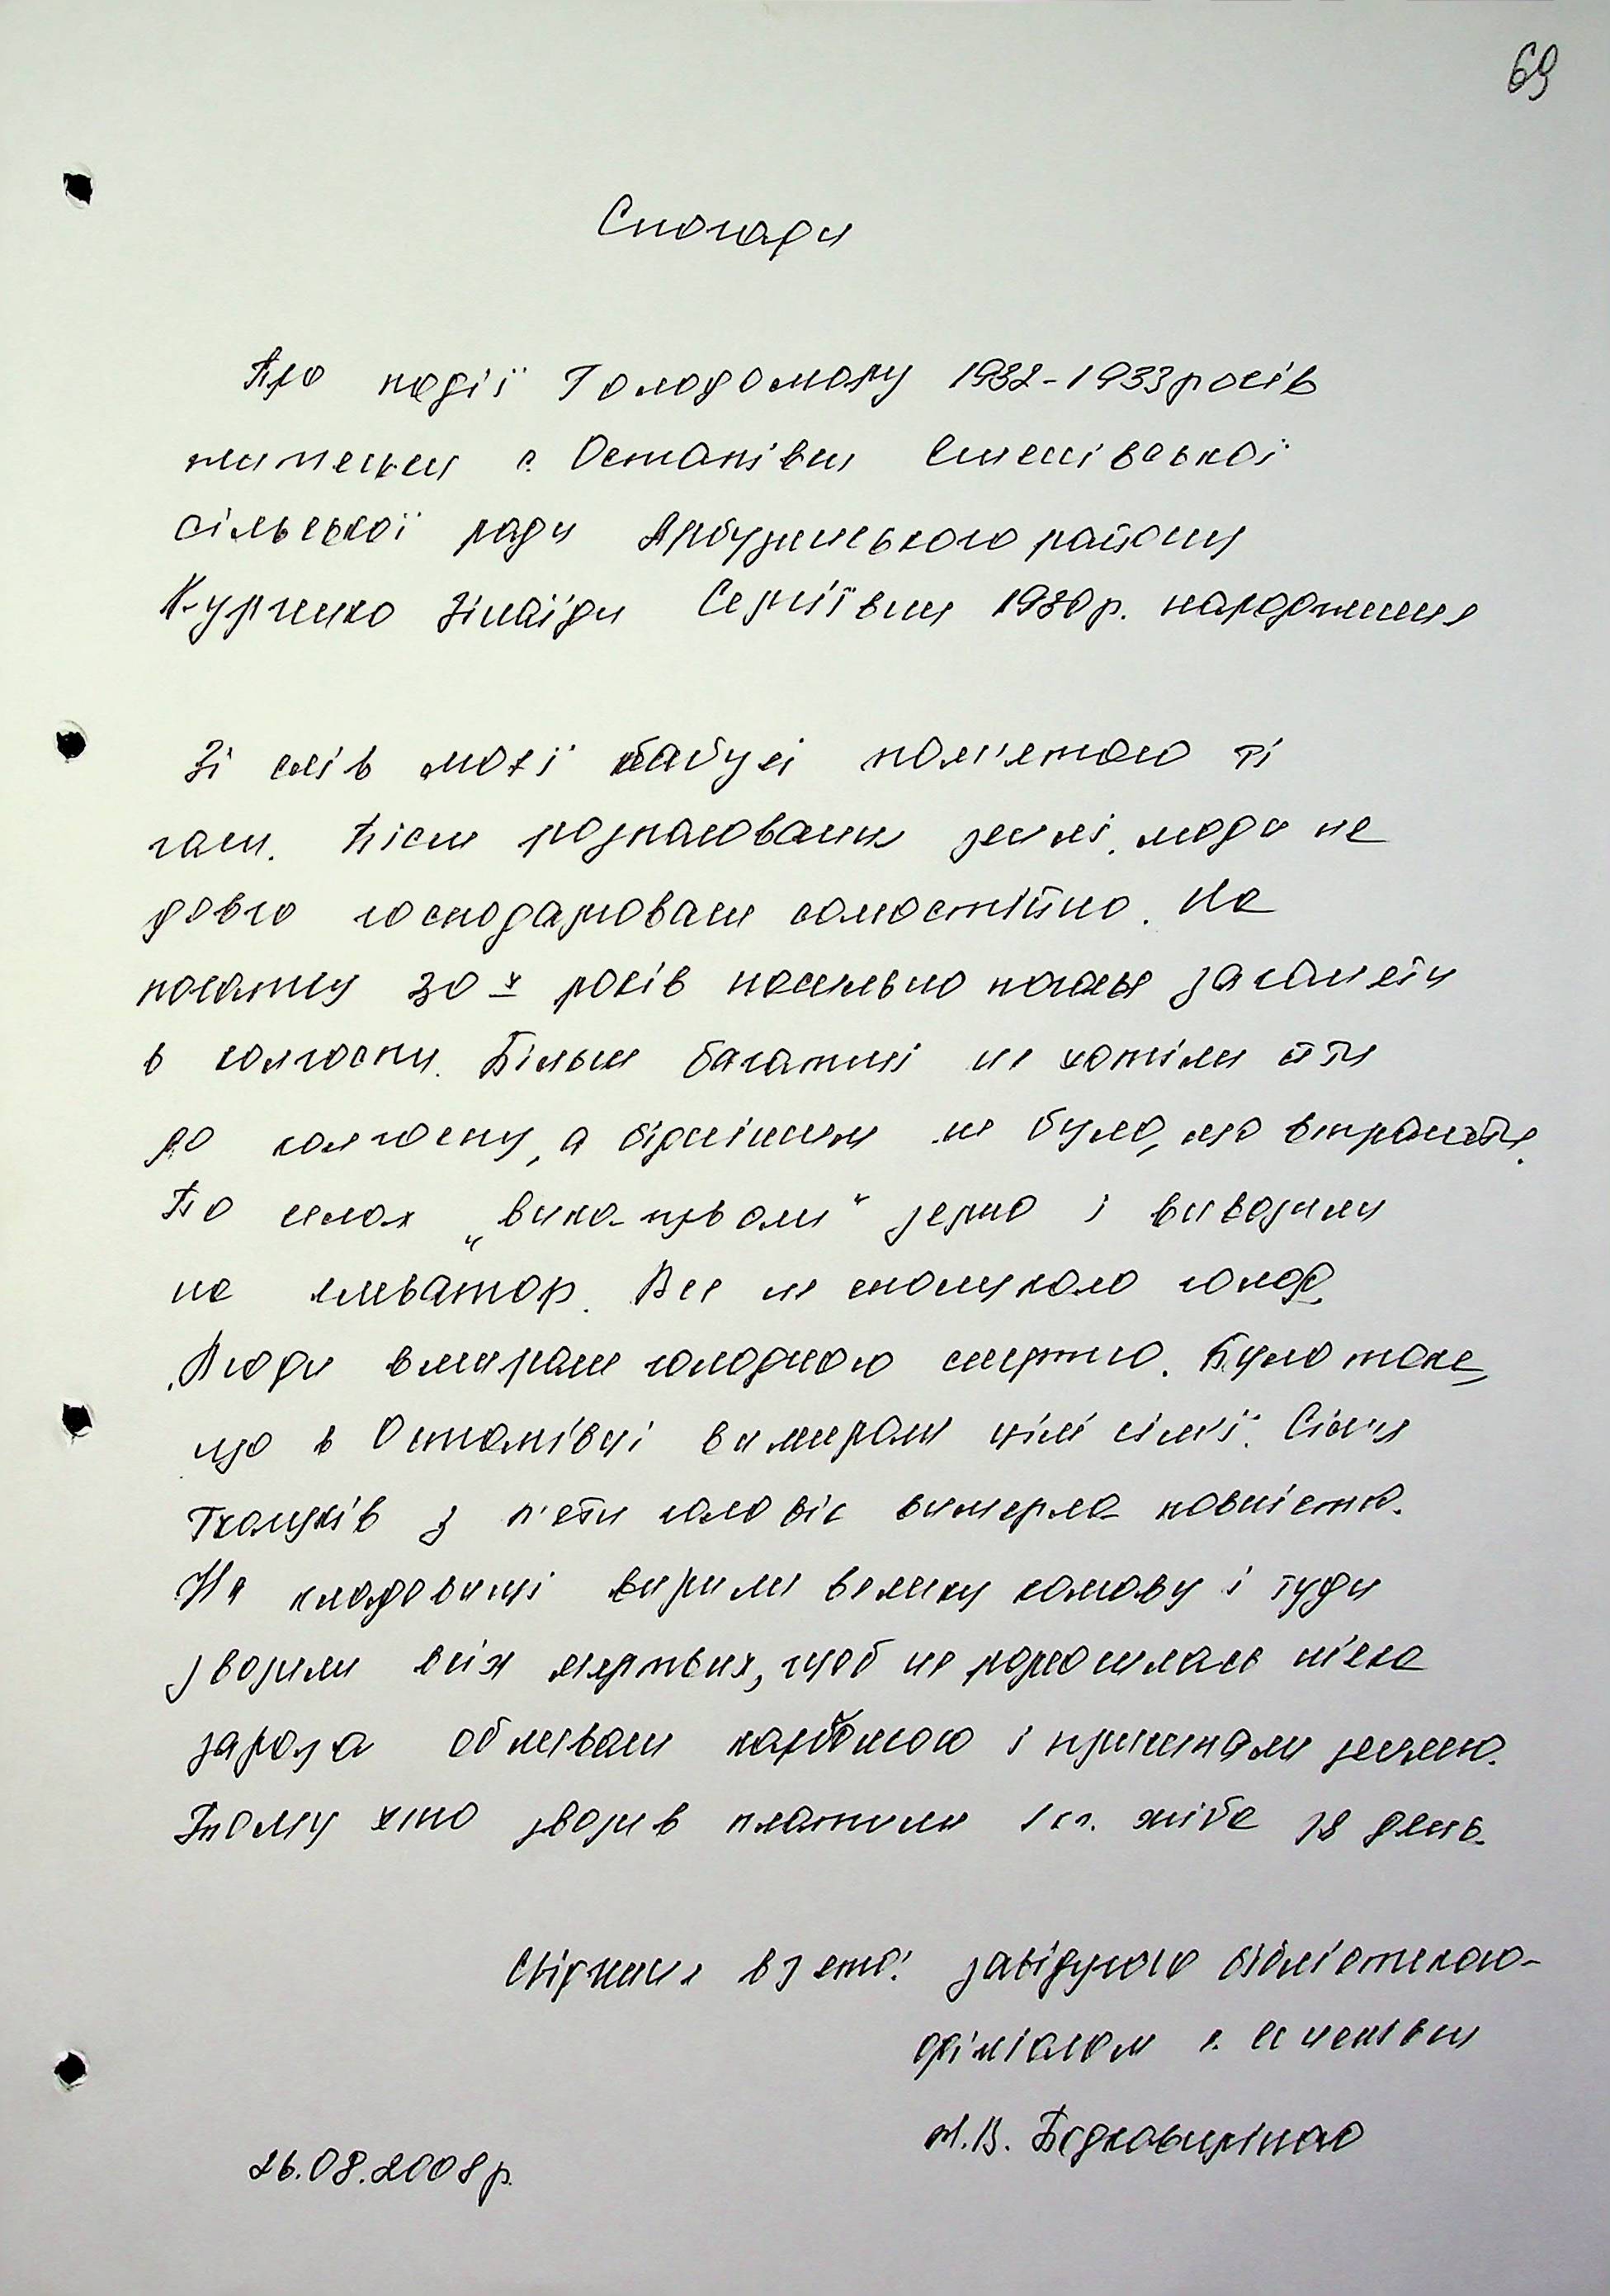 69
Спогади
Про події Голодомору 1932-1933 років
жительки с. Остапівки Семенівської
сільської ради Арбузинського району
Курченко Зінаїди Сергіївни 1930 р. народження
Зі слів моєї бабусі пам'ятаю ті
часи. Після розпаювання землі, люди не
довго господарювали самостійно. На
початку 30-х років насильно почали заганяти
в колгоспи. Більш багатші не хотіли йти
до колгоспу, а біднішим не було, що втрачати.
По селах „викачували" зерно і вивозили
на елеватор. Все це спонукало голод.
Люди вмирали голодною смертю. Було таке,
що в Остапівці вимирали цілі сім'ї. Сім'я
Ткачуків з п'яти чоловік вимерла повністю.
На кладовищі вирили велику канаву і туди
звозили всіх мертвих, щоб не розносилась ніяка
зараза обливали карболкою і присипали землею.
Тому хто звозив платили 1 кг. хліба за день.
Свідчення взято: завідуючою бібліотекою-
філіалом с. Семенівки
Л.В. Підковиріною
26.08.2008 р.